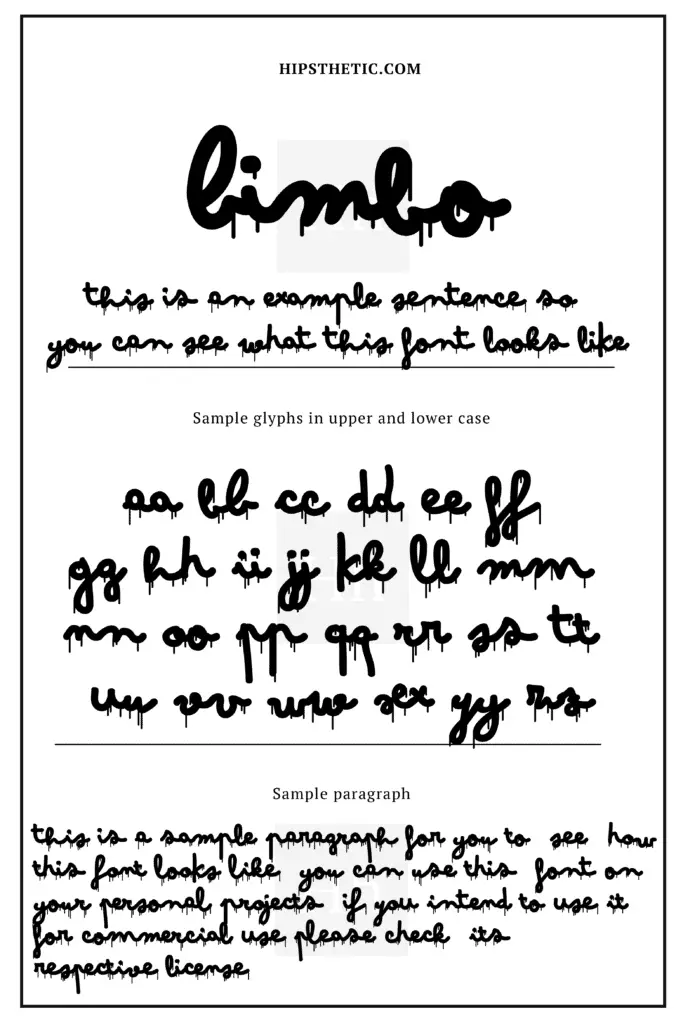 HIPSTHETIC.COM
bimbo
this is an example sentence so
you can see what this font looks like
Sample glyphs in upper and lower case
aa bb cc dd ee ff
gg hh ii jj kk ll mm
nn oo pp qq rr ss tt
uu vv ww xx yy zz
Sample paragraph
this is a sample paragraph for you to see how
this font looks like you can use this font on
your personal projects if you intend to use it
for commercial use please check its
respective license